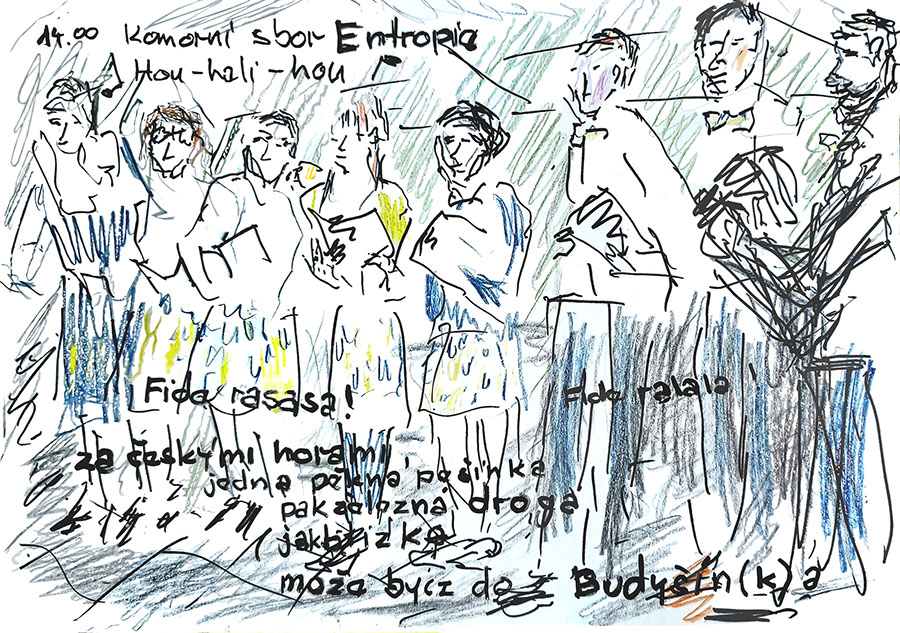 14.00 Komorní sbor Entropie
Hou-hali-hou
Fida rasasa! Fida ralala!
za českými horami
jedna pěkná pěšinka
droga
može bycz do Budyšin(k)a